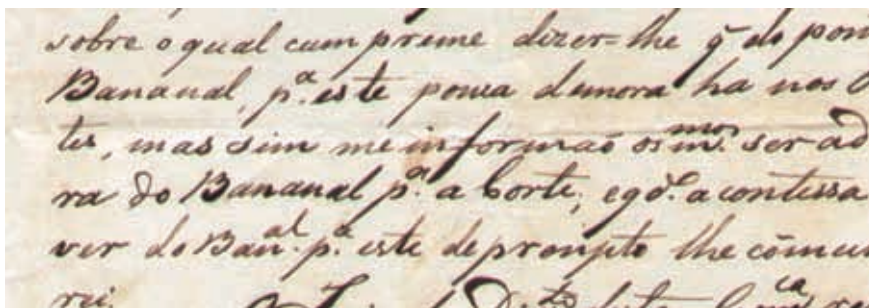 sobre o qual cumpreme dizer-lhe q̃ do pon
Bananal, p.ª este pouca demora ha nos
tes, mas sim me informaõ os m.mos ser a d
ra do Bananal p.ª a Corte; e qd.º acontessa
ver do Ban.al p.ª este de prompto lhe cõmu
rei.